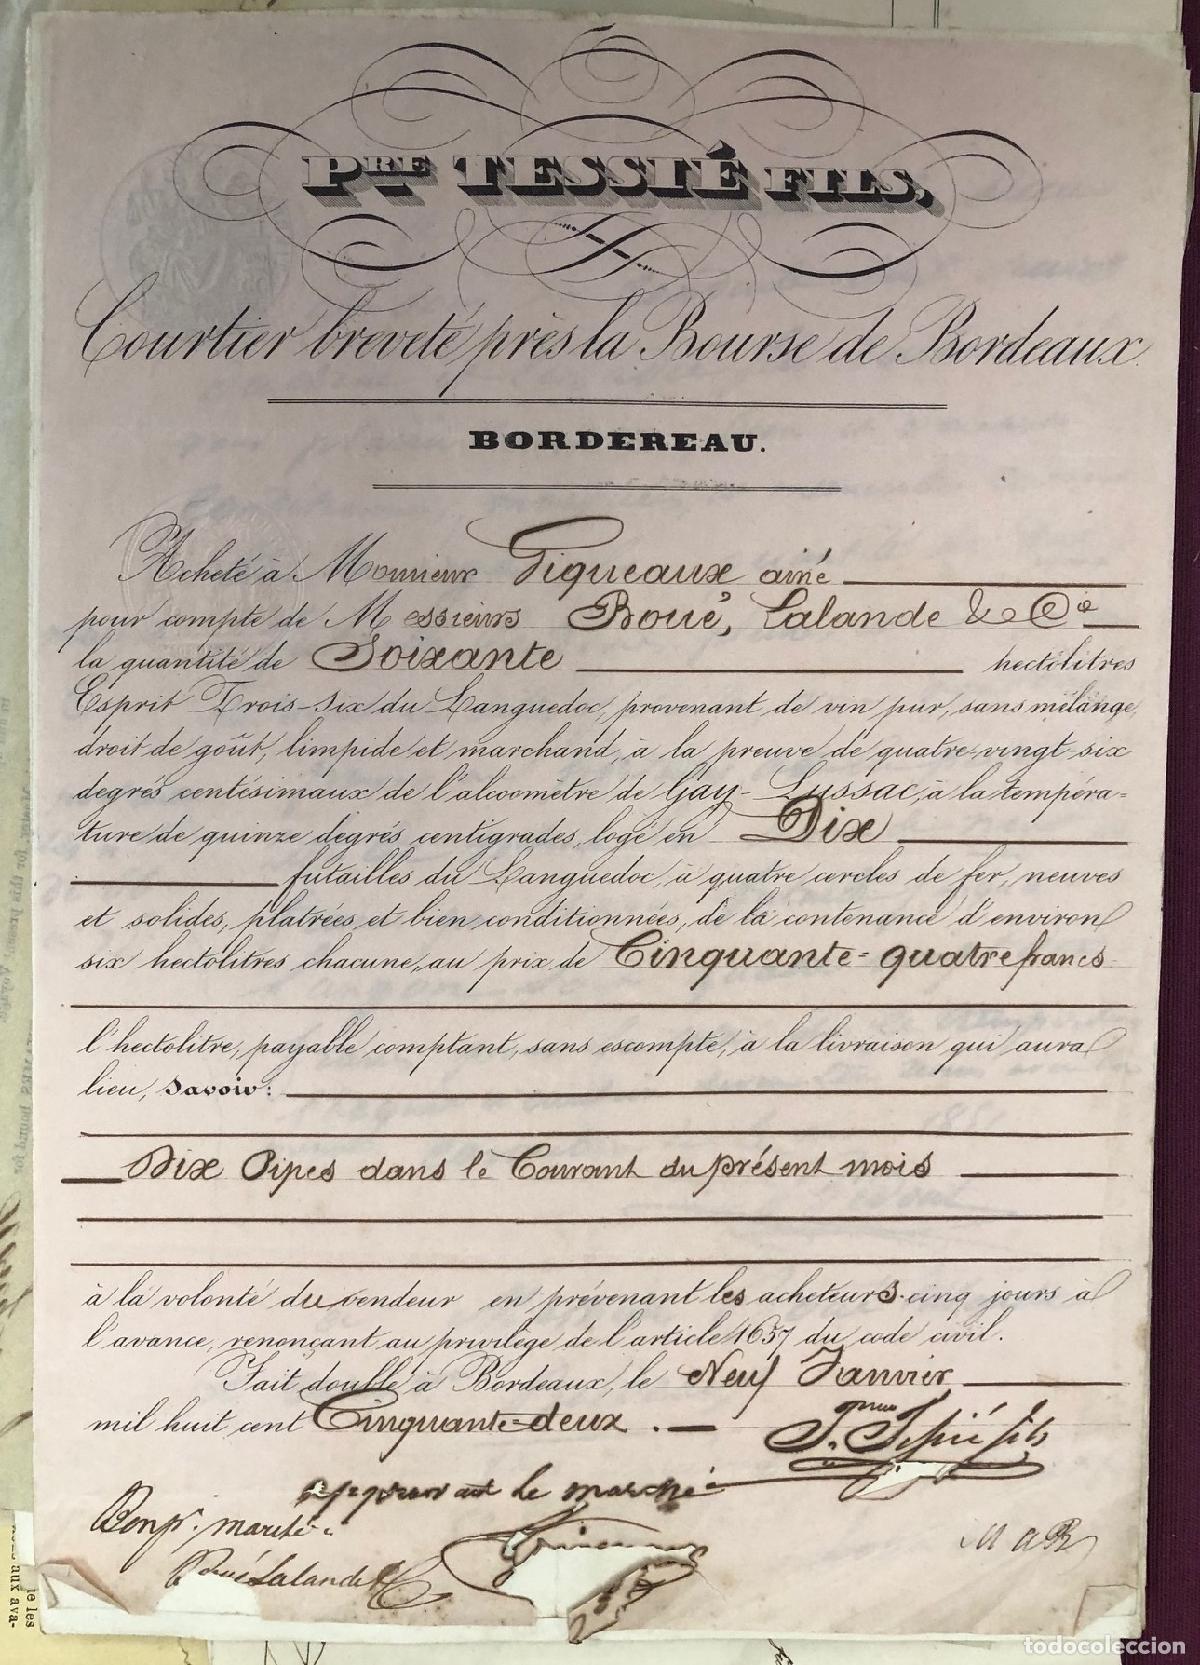 PRE TESSIÉ FILS,
Courtier breveté près la Bourse de Bordeaux.
BORDEREAU.
Acheté à Monsieur Piqueaux ainé
pour compte de Messieurs Boué, Lalande & Cie
la quantité de Soixante hectolitres
Esprit Trois-six du Languedoc, provenant de vin pur, sans mélange,
droit de goût, limpide et marchand, à la preuve de quatre-vingt-six
degrés centésimaux de l'alcoomètre de Gay-Lussac, à la tempéra-
ture de quinze degrés centigrades, logé en Dix
futailles du Languedoc, à quatre cercles de fer, neuves
et solides, platrées et bien conditionnées, de la contenance d'environ
six hectolitres chacune, au prix de Cinquante-quatre francs
l'hectolitre, payable comptant, sans escompte, à la livraison qui aura
lieu, savoir:
Dix Pipes dans le Courant du présent mois
à la volonté du vendeur en prévenant les acheteurs cinq jours à
l'avance, renonçant au privilège de l'article 1657 du code civil.
Fait double à Bordeaux, le Neuf Janvier
mil huit cent Cinquante-deux.
P. Tessié fils
approuvant le marché
Bon pr. marché
Boué Lalande
todocoleccion